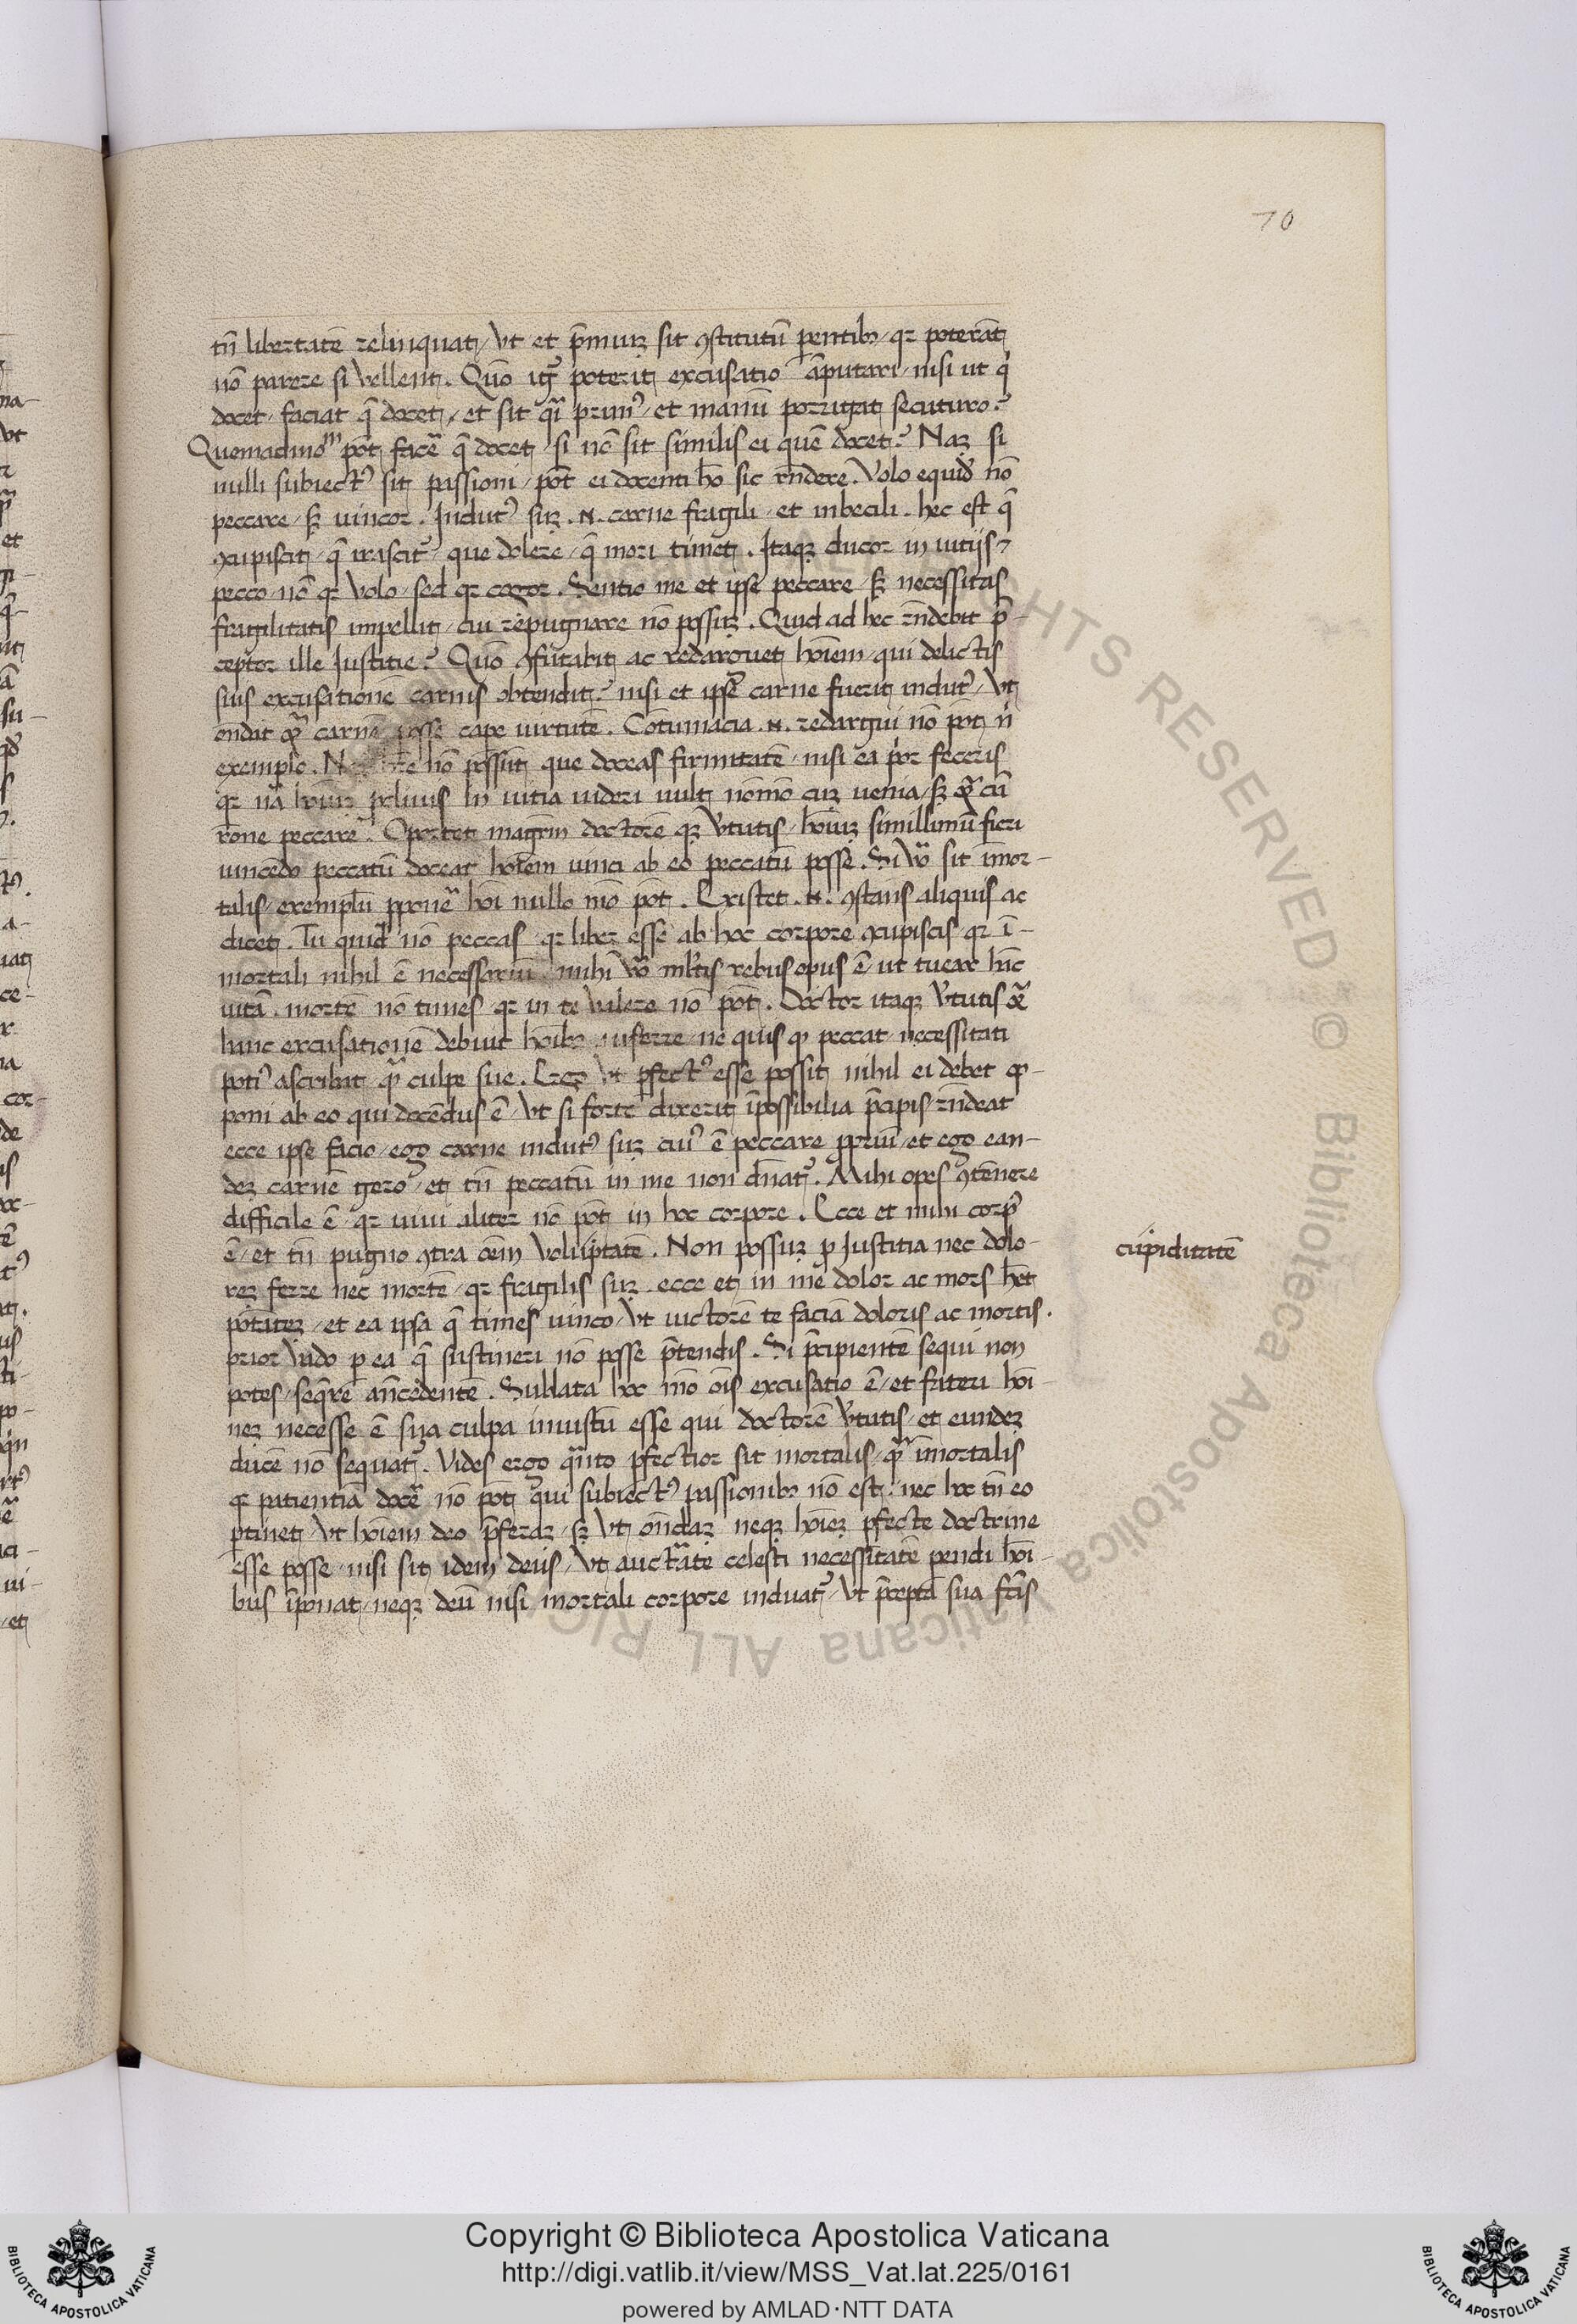 70
tn̄ libertatē relinquat / Vt et p̄miuꝫ sit ꝯstitutū parentibꝫ / qꝛ poterāt
nō parere si Vellent. Quō igᷓ poterit excusatio āputari / nisi ut qͥ
docet / faciat q̄ docet / et sit qᷓi primꝰ / et manū porrigat secuturo?
Quemadmoᵐ pōt facē q̄ docet / si nō sit similis ei quē docet? Naꝫ si
nulli subiectꝰ sit passioni / pōt ei docenti hō sic rn̄dere. Volo equid̄ nō
peccare / sꝫ uincor. Indutꝰ suꝫ .n. carne fragili / et inbecili. hec est q̄
ꝯcupiscit / q̄ irascitᷣ / que dolere / q̄ mori timet. Itaqꝫ ducor in uitijs /
pecco / nō qꝛ Volo / sed qꝛ cogor. Sentio me et ipse peccare / sꝫ necessitas
fragilitatis impellit / cui repugnare nō possuꝫ. Quid ad hec rn̄debit p̄-
ceptor ille Iustitie? Quō ꝯfutabit ac redarguet hoīem / qui delictis
suis excusationē carnis obtendit? nisi et ipse carne fuerit indutꝰ / Vt
ōndat qᷓ carnē posse cape uirtutē. Cōtumacia .n. redargui nō pōt nͥ
exemplo. hō possūt que doceas firmitatē / nisi ea pͥor feceris
qꝛ nā hoīuꝫ ꝓcliuis in uitia uideri uult nō mō cuꝫ uenia / sꝫ qᷓ cū
rōne peccare. Oportet magr̄m doctorē qꝫ Vtutis / hoīuꝫ simillimū fieri
uincēdo peccatū doceat hoīem uinci ab eo peccatū posse. Si Vͦ sit īmor-
talis / exemplū ꝓponē hoī nullo mō pōt. Existet .n. ꝯstans aliquis ac
dicet. Tu quid̄ nō peccas / qꝛ liber esse ab hoc corpore / ꝯcupiscis qꝛ ī-
mortali nihil ē necessariū / mihi Vͦ ml̄tis rebus opus ē / ut tuear hāc
uitā. mortē nō times / qꝛ in te Valere nō pōt. Doctor itaqꝫ Vtutis ēt
hanc excusationē debuit hoībꝫ auferre / ne quis qꝫ peccat necessitati
potiꝰ ascribat qᷓ culpe sue. Ergo Vt ꝑfectꝰ esse possit nihil ei debet op-
poni ab eo qui docēdus ē / Vt si forte dixerit īpossibilia p̄cipis rn̄deat
ecce ipse facio / ego carne indutꝰ suꝫ cuiꝰ ē peccare ꝓpriū / et ego ean-
deꝫ carnē gero / et tn̄ peccatū in me non dn̄atᷣ. Mihi opes ꝯtēnere
difficile ē / qꝛ uiui aliter nō pōt in hoc corpore. Ecce et mihi corpꝰ
ē / et tn̄ pugno ꝯtra oēm Voluptatē. Non possuꝫ ꝓ Iustitia nec dolo-
cupiditatē
reꝫ ferre nec mortē / qꝛ fragilis suꝫ. ecce et in me dolor ac mors hēt
pōtateꝫ / et ea ipsa q̄ times uinco / Vt uictorē te faciā doloris ac mortis.
prior Vado ꝑ ea q̄ sustineri nō posse p̄tendis. Si p̄cipientē sequi non
potes / seqr̄e an̄cedentē. Sublata hoc mō oīs excusatio ē / et fateri hoī-
neꝫ necesse ē sua culpa iniustū esse qui doctorē Vtutis / et eundeꝫ
ducē nō sequatᷣ. Vides ergo qᷓnto ꝑfectior sit mortalis / qᷓ īmortalis
qꝛ patientiā docē nō pōt qui subiectꝰ passionibꝫ nō est. nec hoc tn̄ eo
ꝑtinet / Vt hoīem deo p̄feraꝫ / sꝫ Vt ōndaꝫ neqꝫ hoīeꝫ ꝑfecte doctrine
esse posse / nisi sit idem deus / Vt auctᷓate celesti necessitatē parendi hoī-
bus īponat / neqꝫ deū nisi mortali corpore induatᷣ / Vt p̄cepta sua fc̄is
Copyright © Biblioteca Apostolica Vaticana
http://digi.vatlib.it/view/MSS_Vat.lat.225/0161
powered by AMLAD·NTT DATA